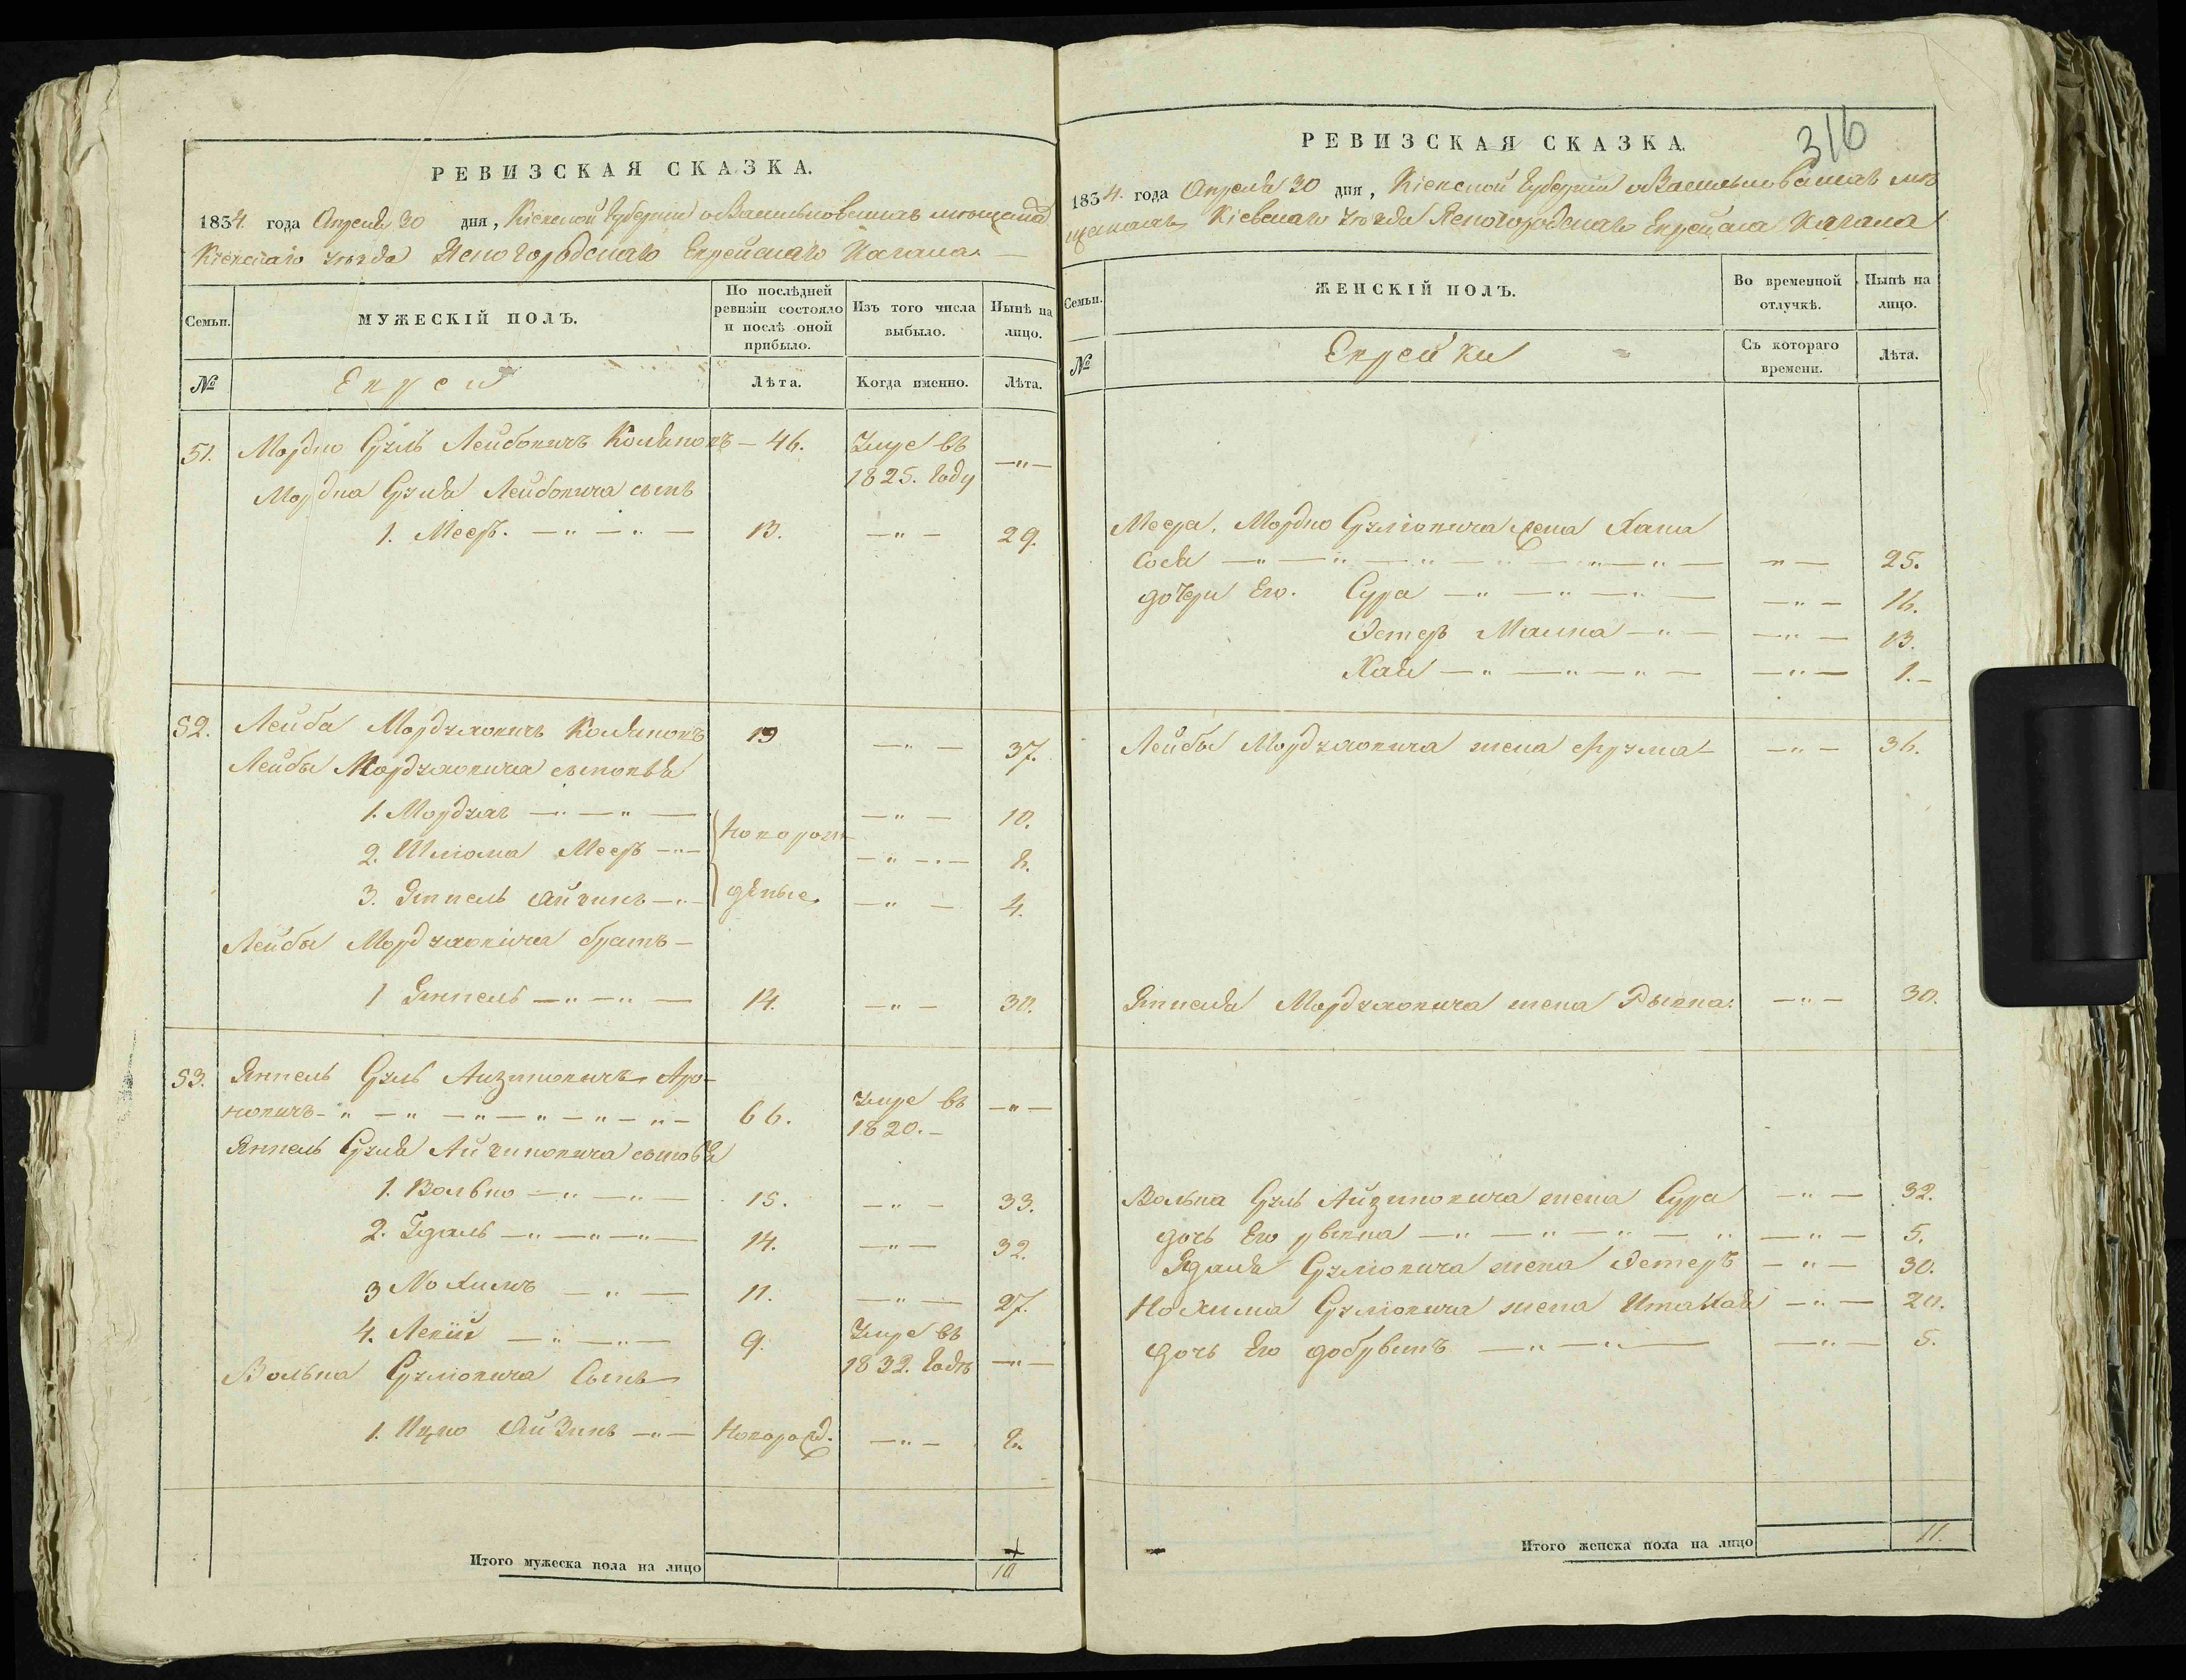 РЕВИЗСКАЯ СКАЗКА.
1834 года Апреля 30 дня, Кіевской Губерніи о Васильковскихъ мещана
Кіевскаго уезда Ясногородскаго Еврейскаго Кагала. —
Семьи.
МУЖЕСКІЙ ПОЛЪ.
По послѣдней ревизіи состояло и послѣ оной прибыло.
Изъ того числа выбыло.
Нынѣ на лицо.
№
Евреи
Лѣта.
Когда именно.
Лѣта.
51. Мордко Сруль Лейбовичъ — 46. Умре въ
1825. году —"—
Мордка Сруля Лейбовича сынъ
1. Мееръ. —"—"— 13. —"— 29.
52. Лейба Мордховичъ 19 —"— 37.
Лейбы Мордховича сыновья
1. Мордхъ —"—"— Новорож —"— 10.
2. Шліома Мееръ —"— —"—"—
3. Янкель Айзикъ —"— дѣные —"— 4.
Лейбы Мордховича братъ —
1 Янкель —"—"— 14. —"— 30.
53. Янкель Сруль Аро-
новичъ —"—"—"—"—"—"— 66. Умре въ
1820. — —"—
Янкель Сруля Айзиковича сыновья
1. Волько —"—"— 15. —"— 33.
2. Гдаль —"—"—"— 14. —"— 32.
3 Нохимъ —"— 11. —"— 27.
4. Левій —"—"— 9. Умре въ
1832. годѣ —"—
Волька Сруліовича Сынъ
1. Ицко Айзикъ —"— Новорожд. —"—
Итого мужеска пола на лицо 10
316
РЕВИЗСКАЯ СКАЗКА.
1834. года Апреля 30 дня, Кіевской Губерніи о Васильковскихъ ме
щанахъ Кіевскаго уезда Ясногородскаго Еврейскаго Кагала
Семьи.
ЖЕНСКІЙ ПОЛЪ.
Во временной отлучкѣ.
Нынѣ на лицо.
№
Еврейки
Съ котораго времени.
Лѣта.
Меера Мордко Сруліовича жена Хана
Сося —"—"—"—"—"—"— —"— 25.
дочери Его. Сура —"—"—"— —"— 16.
Эстеръ Малка —"— —"— 13.
Хая —"—"—"— —"— 1. —
Лейбы Мордховича жена Фрума —"— 36.
Янкеля Мордховича жена —"— 30.
Волька Сруль Айзиковича жена Сура —"— 32.
дочь Его рывка —"—"—"—"— —"— 5.
Гдаля Сруліовича жена Эстеръ —"— 30.
Нохима Сруліовича жена Ита Хая —"— 20.
дочь Его добрышъ —"—"— —"— 5.
Итого женска пола на лицо 11.